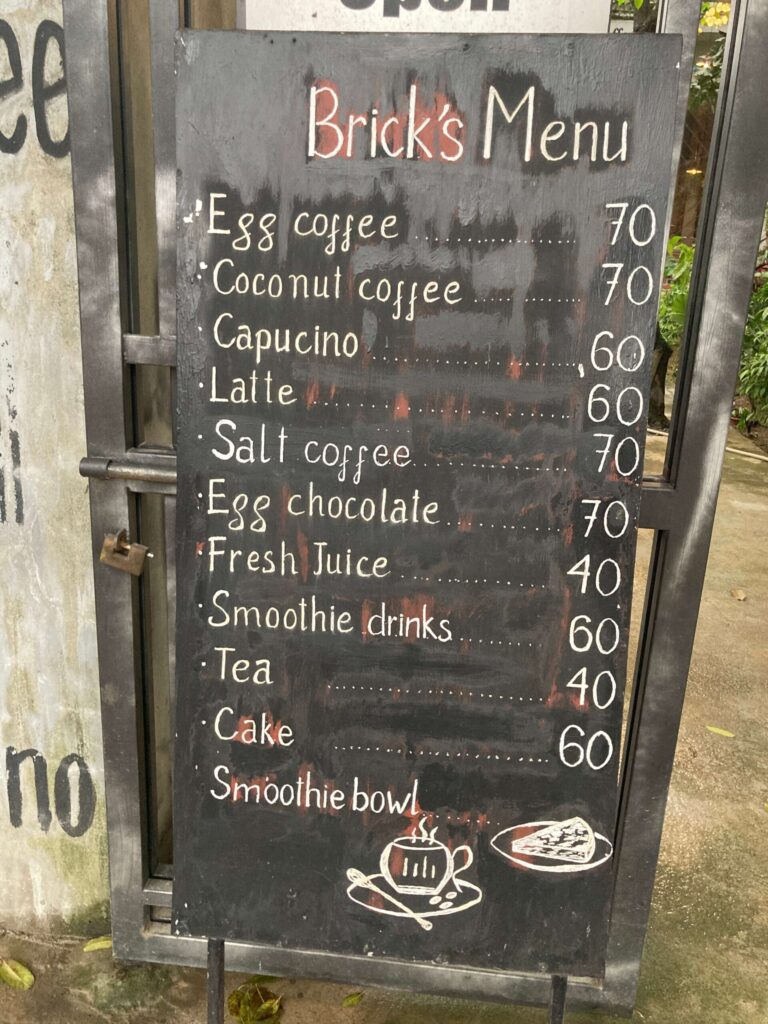 Open
Brick's Menu
Egg coffee ................ 70
Coconut coffee ............ 70
Capucino .................. 60
Latte ..................... 60
Salt coffee ............... 70
Egg chocolate ............. 70
Fresh Juice ............... 40
Smoothie drinks ........ 60
Tea ....................... 40
Cake ...................... 60
Smoothie bowl ......